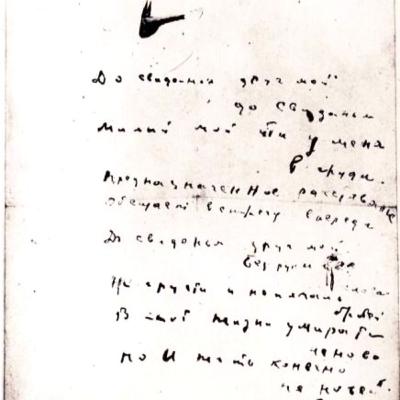 До свиданья друг мой
до свиданья
Милый мой ты у меня
в груди.
Предназначенное расставанье
обещает встречу впереди
До свиданья друг мой
без руки
Не грусти и не печаль
бровей
В этой жизни умирать
не ново
но и жить конечно
не новей.